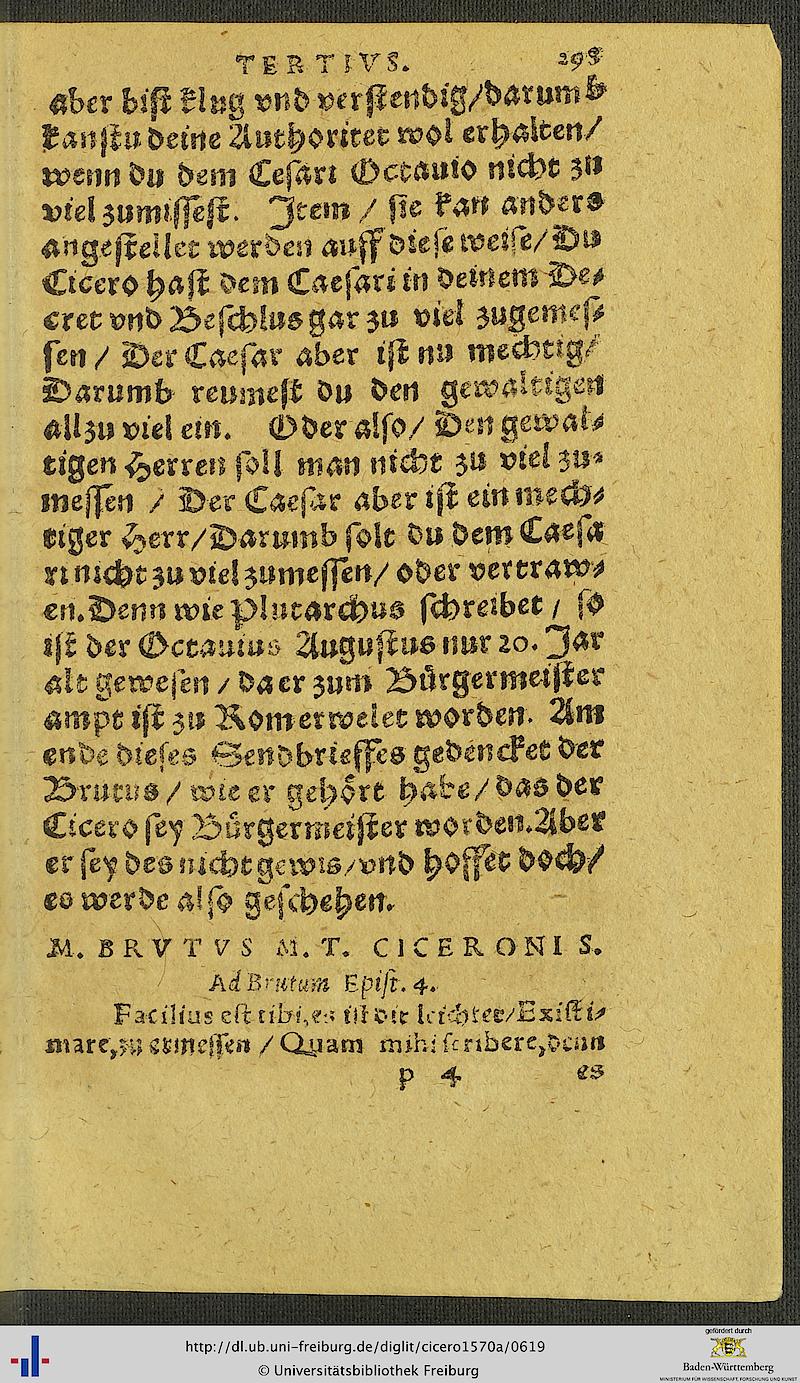 TERTIVS. 298
aber bist klug vnd verstendig/darumb
kanstu deine Authoritet wol erhalten/
wenn du dem Cesari Octauio nicht zu
viel zumissest. Item / sie kan anders
angestellet werden auff diese weise/Du
Cicero hast dem Caesari in deinem De⸗
cret vnd Beschlus gar zu viel zugemes⸗
sen / Der Caesar aber ist nu mechtig/
Darumb reumest du den gewaltigen
allzu viel ein. Oder also/ Den gewal⸗
tigen Herren soll man nicht zu viel zu⸗
messen / Der Caesar aber ist ein mech⸗
tiger Herr/Darumb solt du dem Caesa
ri nicht zu viel zumessen/ oder vertraw⸗
en. Denn wie Plutarchus schreibet / so
ist der Octauius Augustus nur 20. Jar
alt gewesen / da er zum Bůrgermeister
ampt ist zu Rom erwelet worden. Am
ende dieses Sendbrieffes gedencket der
Brutus / wie er gehỏrt habe/das der
Cicero sey Bůrgermeister worden. Aber
er sey des nicht gewis/vnd hoffet doch/
es werde also geschehen.
M. BRVTVS M. T. CICERONI S.
Ad Brutum Epist. 4.
Facilius est tibi, es ist dir leichter/Existi⸗
mare, zu ermessen / Quam mihi scribere, denn
p 4 es
http://dl.ub.uni-freiburg.de/diglit/cicero1570a/0619
© Universitätsbibliothek Freiburg
gefördert durch
Baden-Württemberg
MINISTERIUM FÜR WISSENSCHAFT, FORSCHUNG UND KUNST